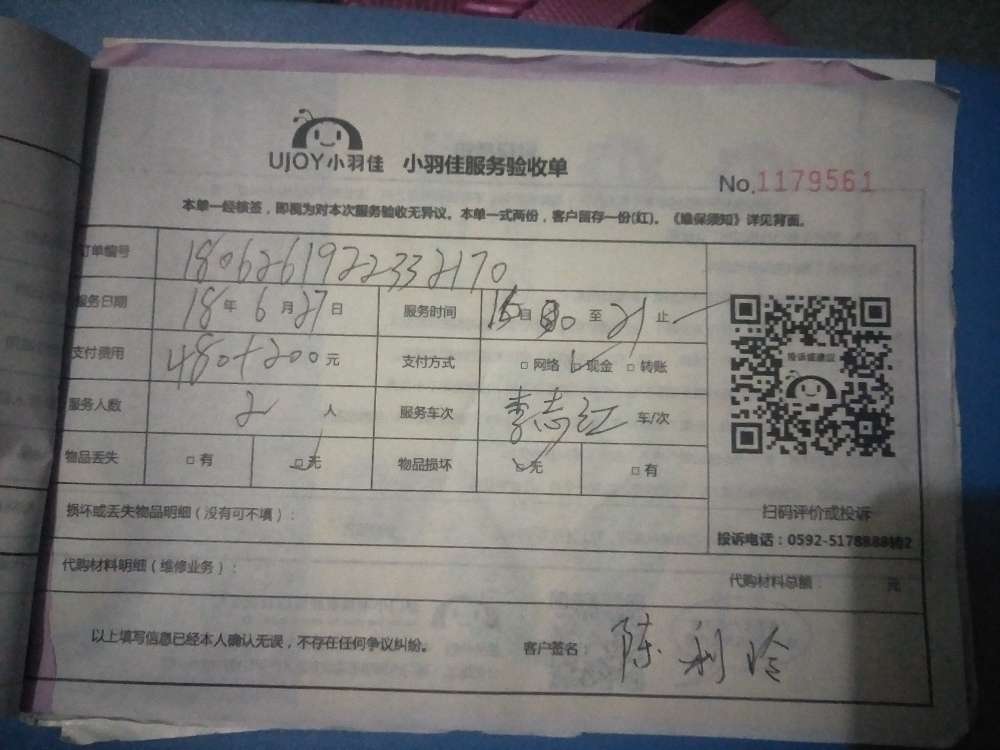 UJOY小羽佳 小羽佳服务验收单
No.1179561
本单一经核签,即视为对本次服务验收无异议。本单一式两份,客户留存一份(红)。《维保须知》详见背面。
订单编号 1806261922332170
服务日期 18年6月27日 服务时间 自 至21止
支付费用 480+200元 支付方式 □网络 □现金 □转账
投诉或建议
服务人数 2人 服务车次 李志红 车/次
物品丢失 □有 □无 物品损坏 □无 □有
损坏或丢失物品明细(没有可不填):
扫码评价或投诉
投诉电话:0592-5178888转2
代购材料明细(维修业务): 代购材料总额: 元
以上填写信息已经本人确认无误,不存在任何争议纠纷。 客户签名:陈利玲